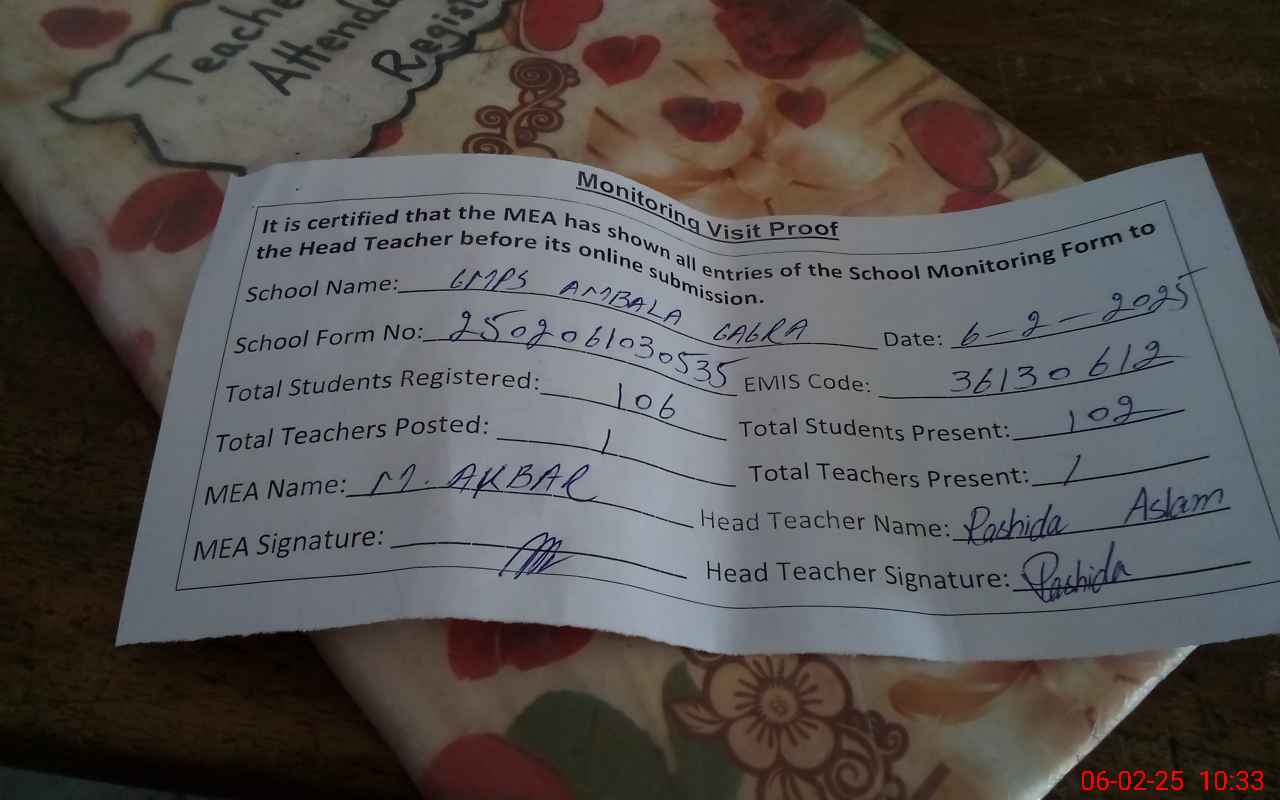 Teache
Attenda
Regist
Monitoring Visit Proof
It is certified that the MEA has shown all entries of the School Monitoring Form to
the Head Teacher before its online submission.
School Name: GMPS AMBALA GAGRA Date: 6-2-2025
School Form No: 2502061030535 EMIS Code: 36130612
Total Students Registered: 106 Total Students Present: 102
Total Teachers Posted: 1 Total Teachers Present: 1
MEA Name: M. AKBAR Head Teacher Name: Rashida Aslam
MEA Signature: Head Teacher Signature: Rashida
06-02-25 10:33